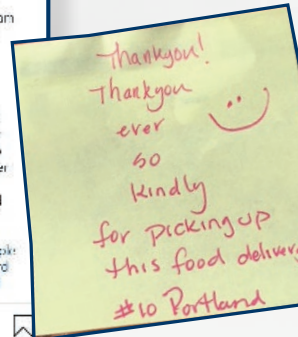 Thankyou!
Thankyou
ever
so
kindly
for picking up
this food
#10 Portland